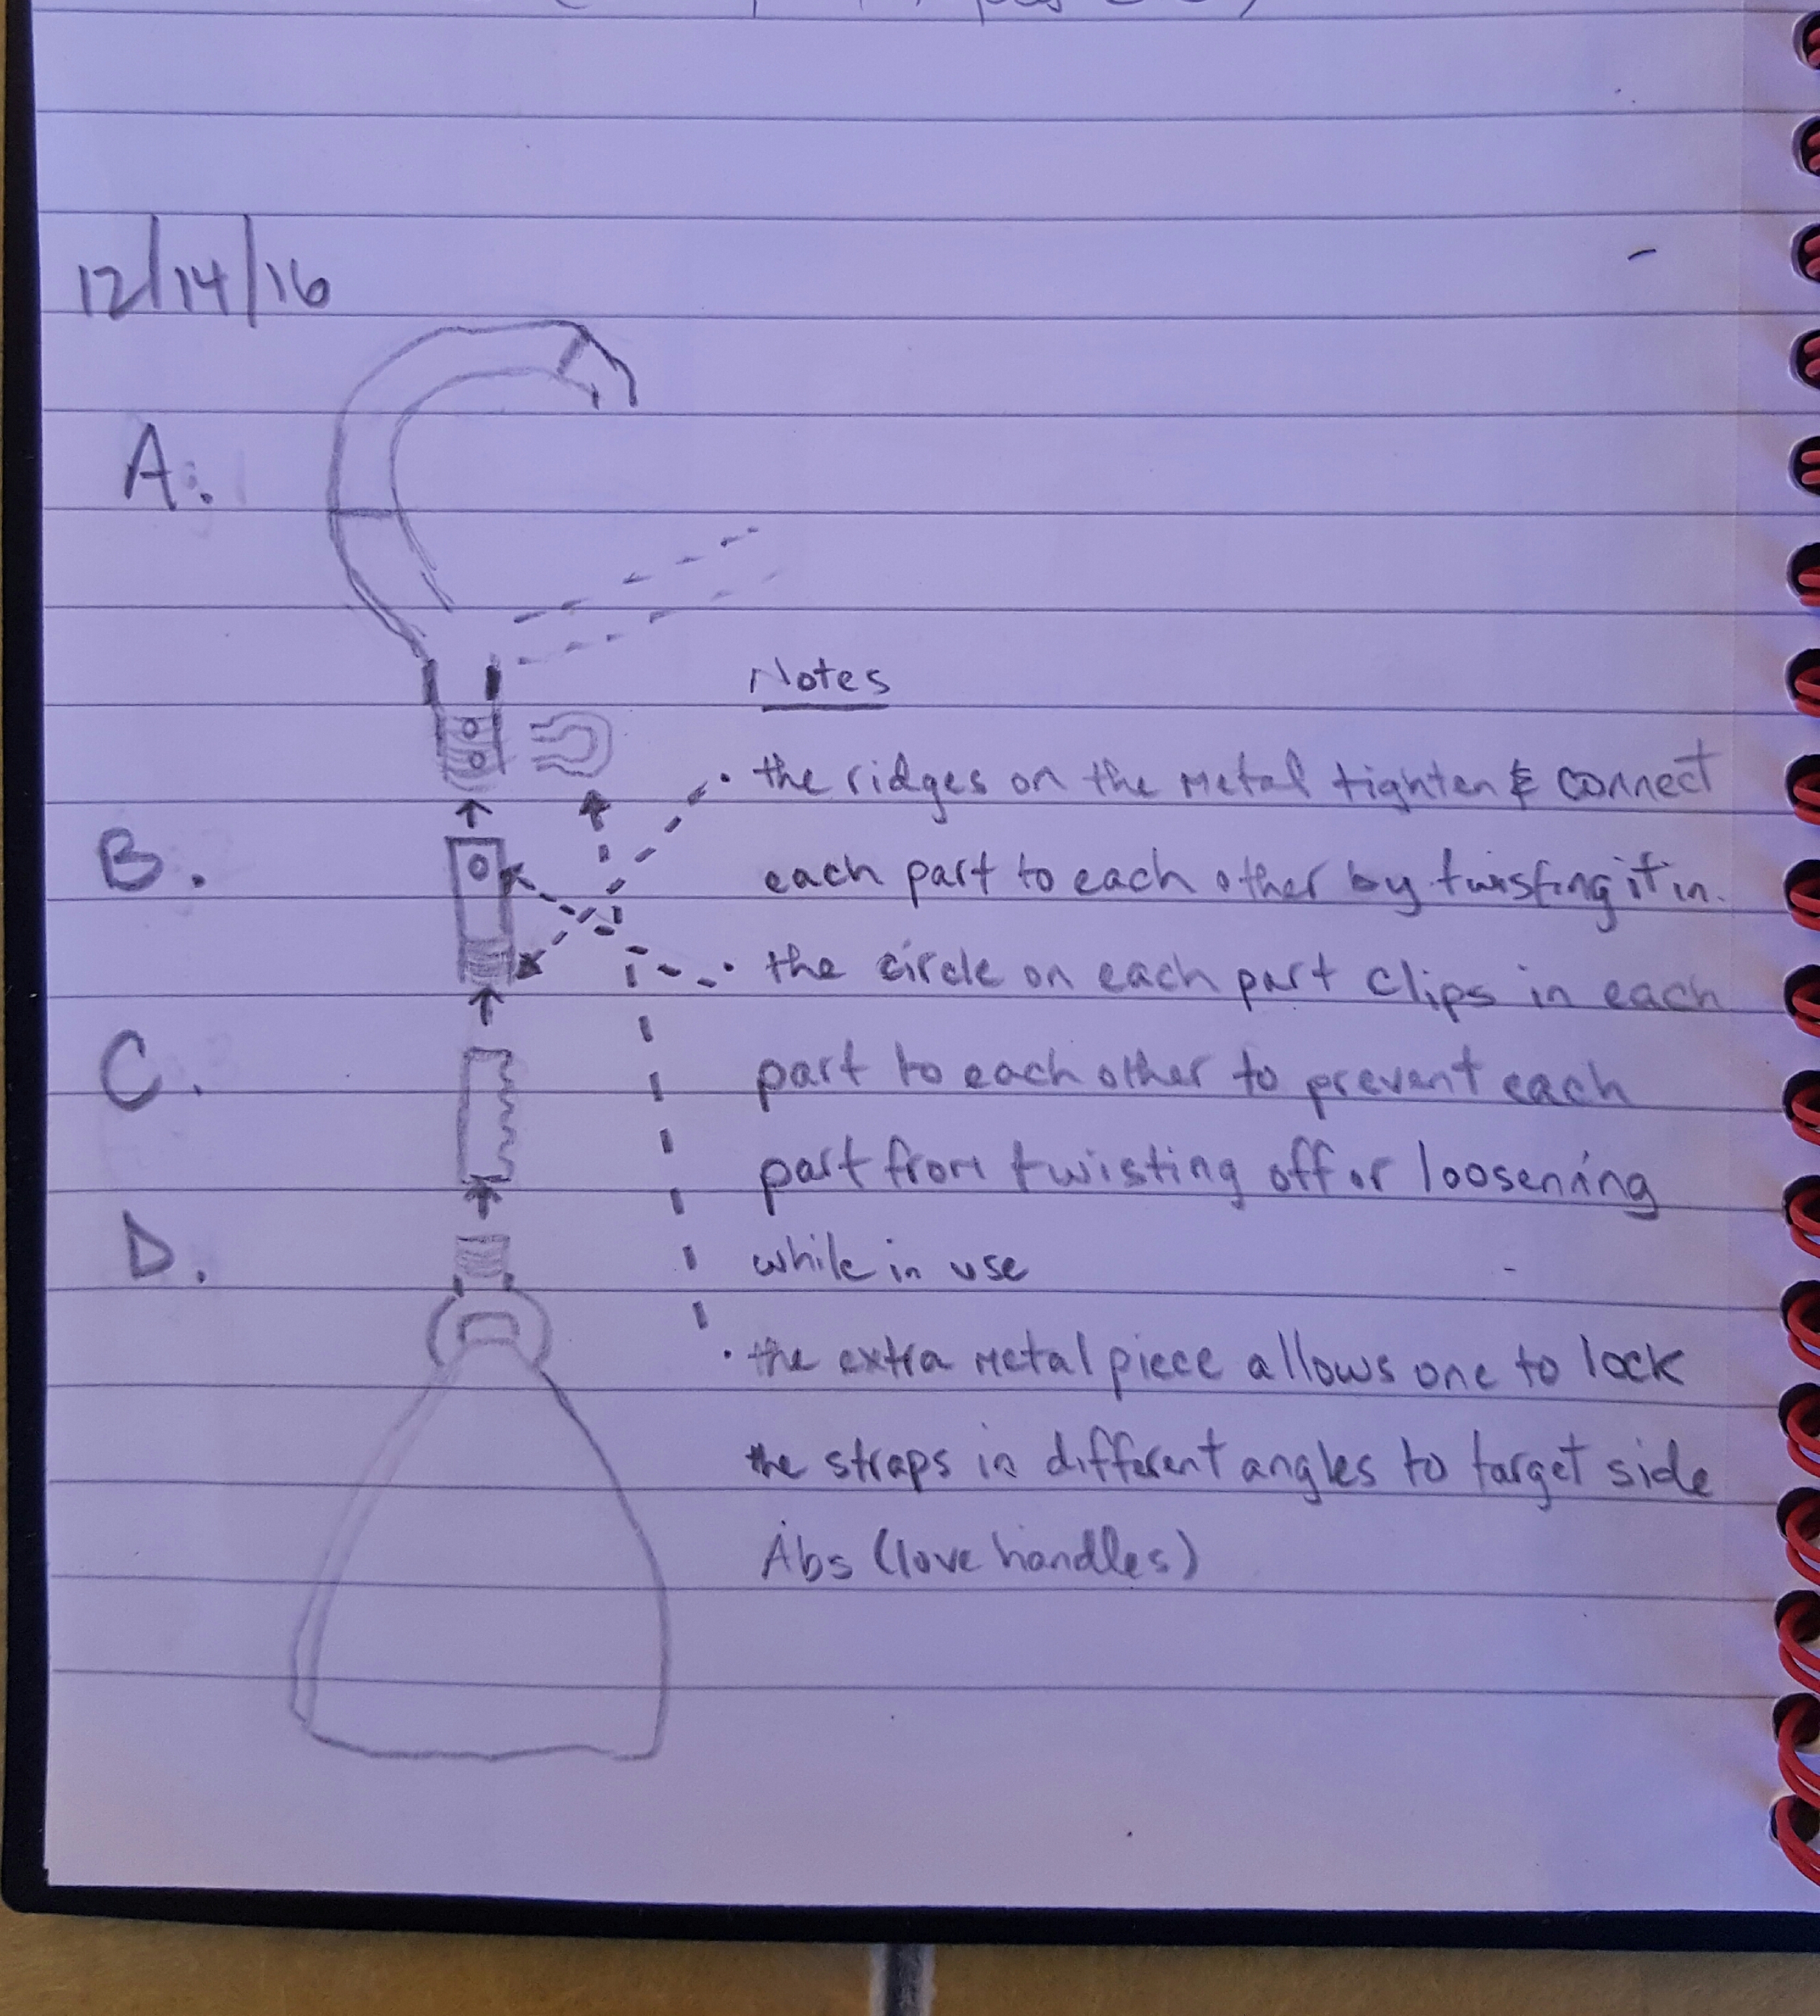 12/14/16
A.
Notes
• the ridges on the Metal tighten & connect
B.
each part to each other by twisting it in.
• the circle on each part clips in each
C.
part to each other to prevent each
part from twisting off or loosening
D.
while in use
• the extra Metal piece allows one to lock
the straps in different angles to target side
Abs (love handles)